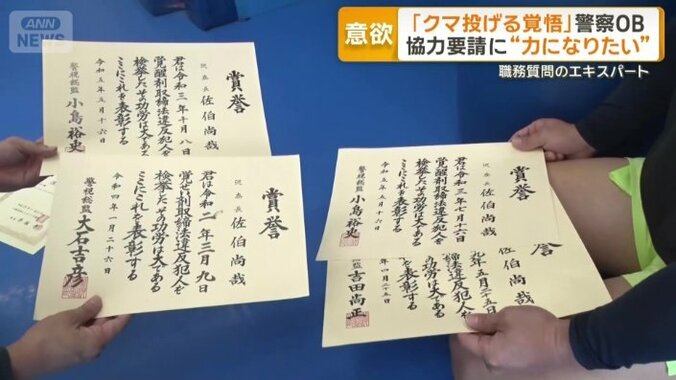 ANN
NEWS
意欲
「クマ投げる覚悟」警察OB
協力要請に“力になりたい”
職務質問のエキスパート
賞誉
巡査長 佐伯尚哉
君は令和三年十月八日
覚醒剤取締法違反犯人を
検挙したその功労は大である
ここにこれを表彰する
令和五年五月十六日
警視総監 小島裕史
賞誉
巡査長 佐伯尚哉
君は令和二年三月九日
覚せい剤取締法違反犯人を
検挙したその功労は大である
ここにこれを表彰する
令和四年一月二十六日
警視総監 大石吉彦
賞誉
巡査長 佐伯尚哉
君は令和三年七月十六日
覚醒剤取締法違反犯人を
検挙したその功労は大である
ここにこれを表彰する
令和五年五月十六日
警視総監 小島裕史
誉
佐伯尚哉
年五月二十五日
法違反犯人を
功労は大である
表彰する
月二十五日
総監 吉田尚正